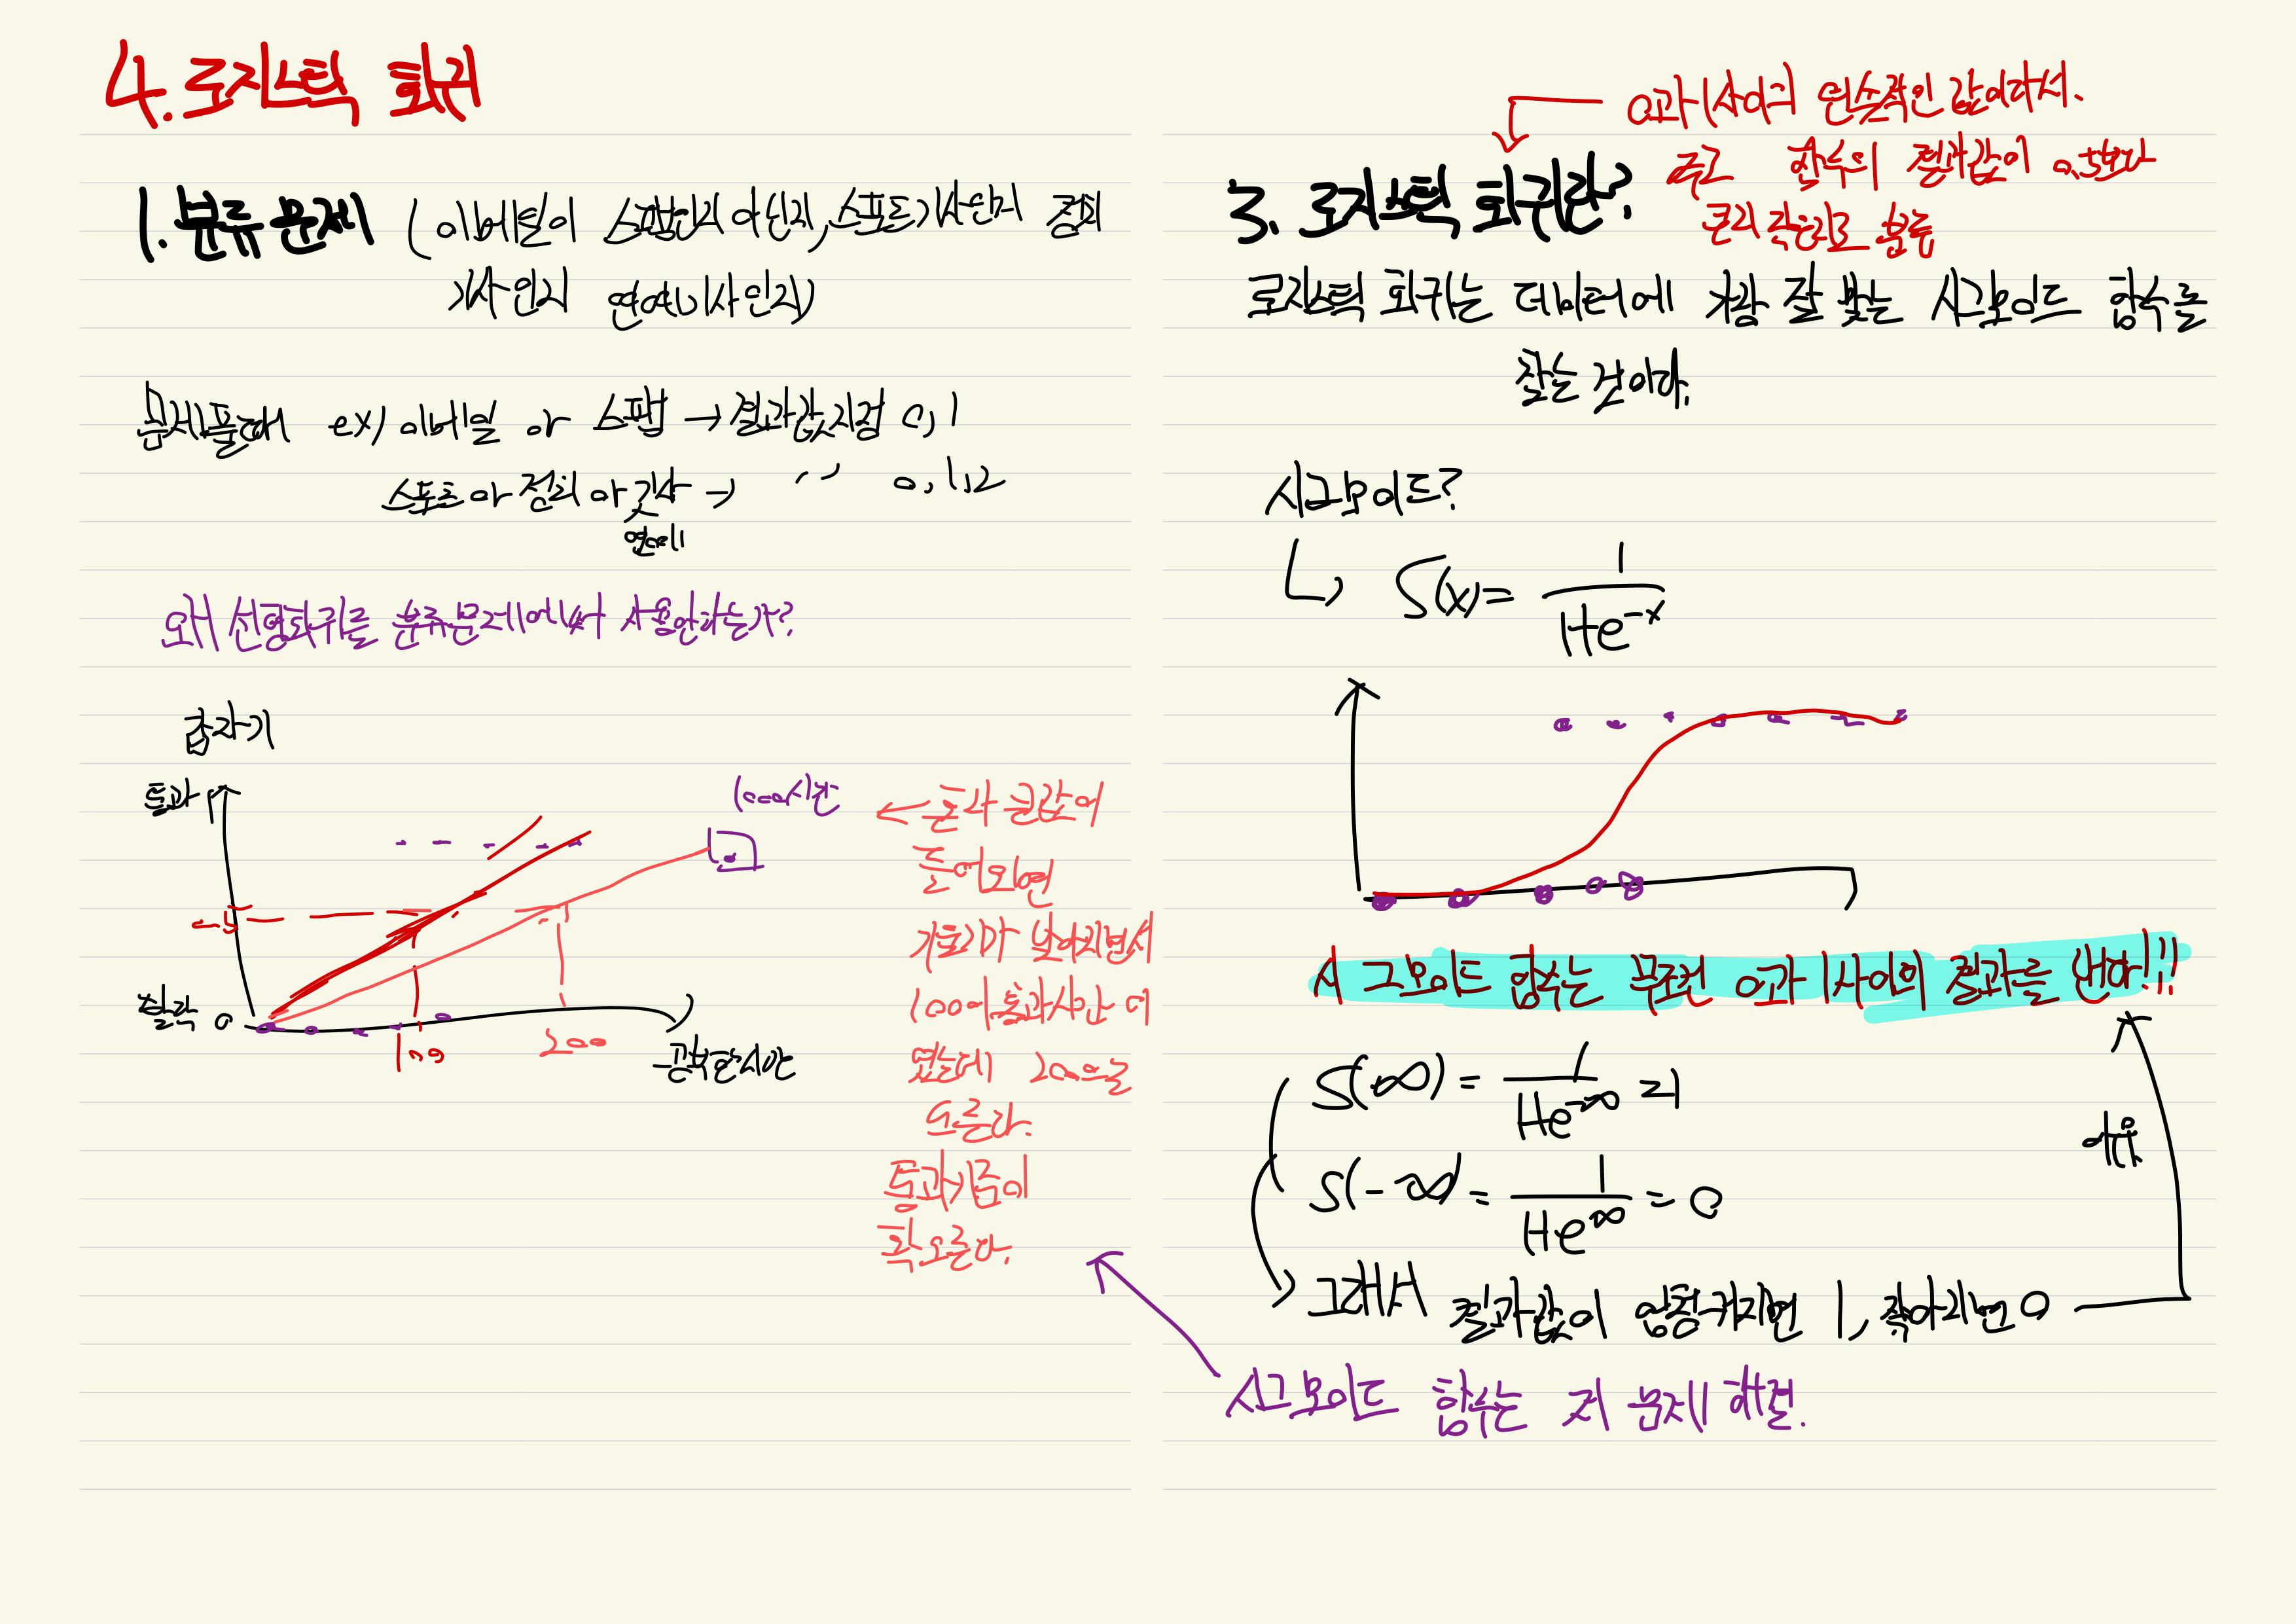 4. 로지스틱 회귀
1. 분류 문제 (이메일이 스팸인지 아닌지, 스포트기사인지 정치
기사인지 연예기사인지)
문제풀때 ex) 이메일 or 스팸 → 결과값지정 0, 1
스포츠야 정치야 → 〃 0, 1, 2
연예
왜 선형회귀를 분류문제에서 사용안하는가?
갑자기
통과
1000시간
0.5
실패 0
100
200
공부한시간
← 큰값이
들어오면
기울기가 낮아지면서
100이 통과시간이
였는데 200으로
오른다.
통과기준이
확 오른다.
0과 1사이의 연속적인 값이라서.
주로 함수의 결과값이 0.5보다
큰지 작은지로 분류
3. 로지스틱 회귀란?
로지스틱 회귀는 데이터에 가장 잘 맞는 시그모이드 함수를
찾는 것이다.
시그모이드?
↳ S(x) = 1 / (1+e^-x)
시그모이드 함수는 무조건 0과 1사이의 결과를 낸다!!!
S(∞) = 1 / (1+e^-∞) = 1
S(-∞) = 1 / (1+e^∞) = 0
이유
그래서 결과값이 엄청커지면 1, 작아지면 0
시그모이드 함수는 저 문제 해결.